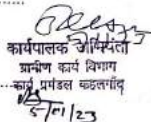 कार्यपालक अभियंता
ग्रामीण कार्य विभाग
कार्य प्रमंडल कहलगाँव
5/01/23